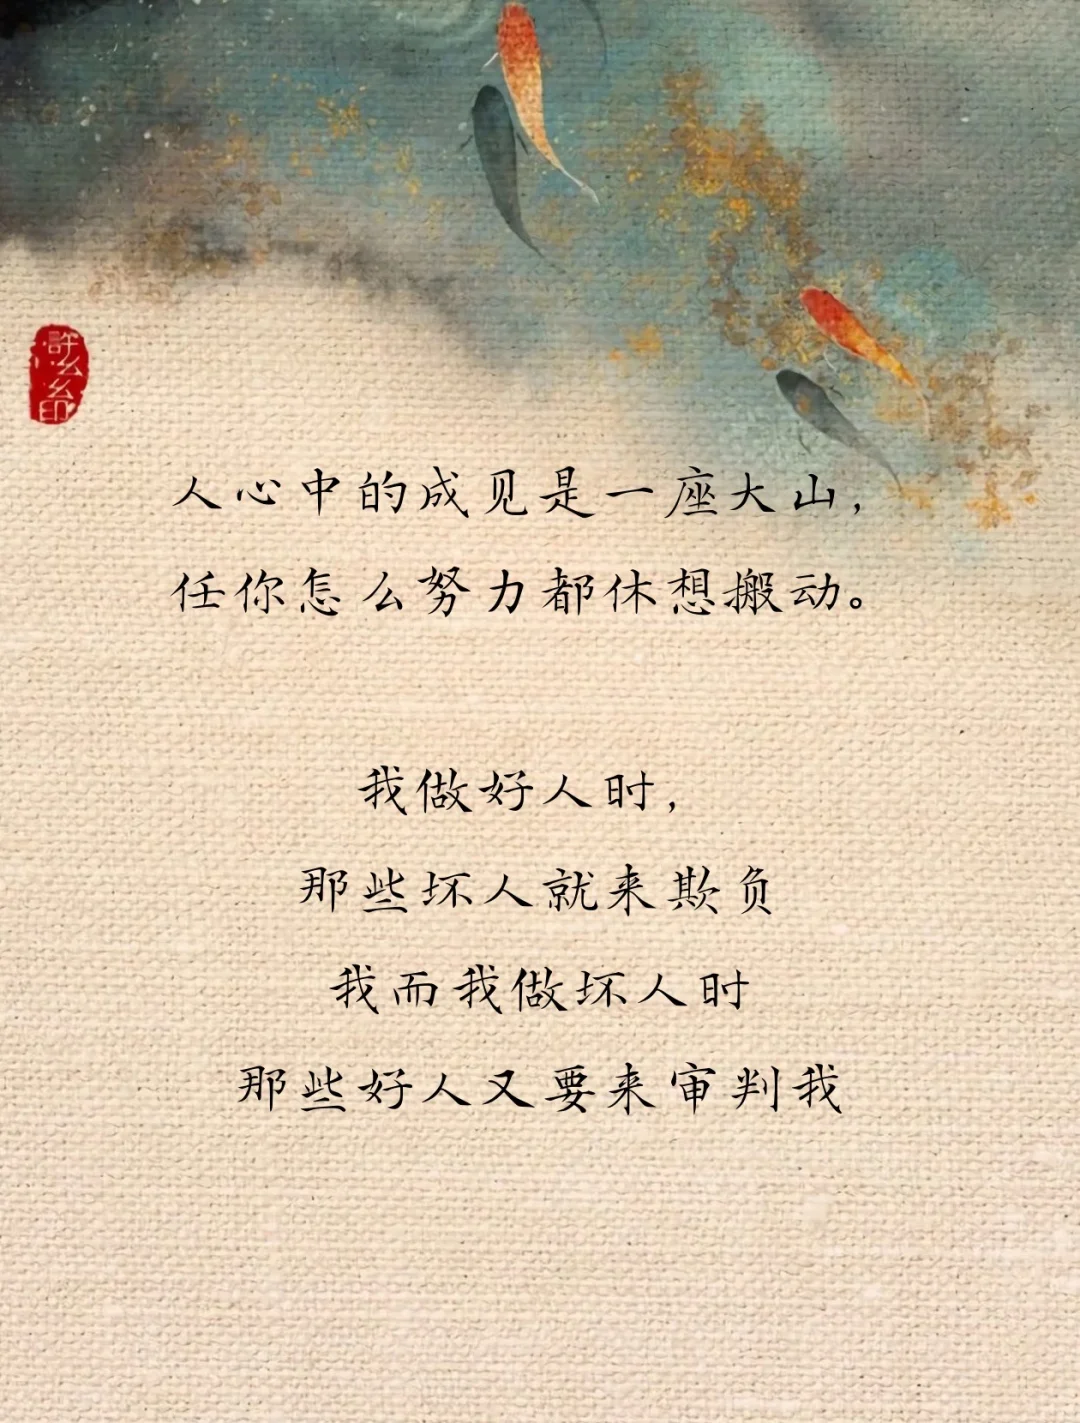 許么么印
人心中的成见是一座大山，
任你怎么努力都休想搬动。
我做好人时，
那些坏人就来欺负
我而我做坏人时
那些好人又要来审判我